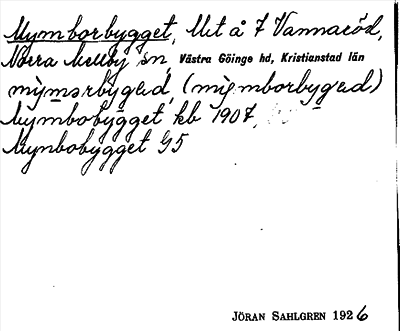 Mymborbygget, Ut å 7 Vannaröd,
Norra Mellby sn, Västra Göinge hd, Kristianstad län
mỳmərbygəd, (mỳmborbygəd)
Mymbobygget kb 1907,
Mynbobygget G5
JÖRAN SAHLGREN 1926